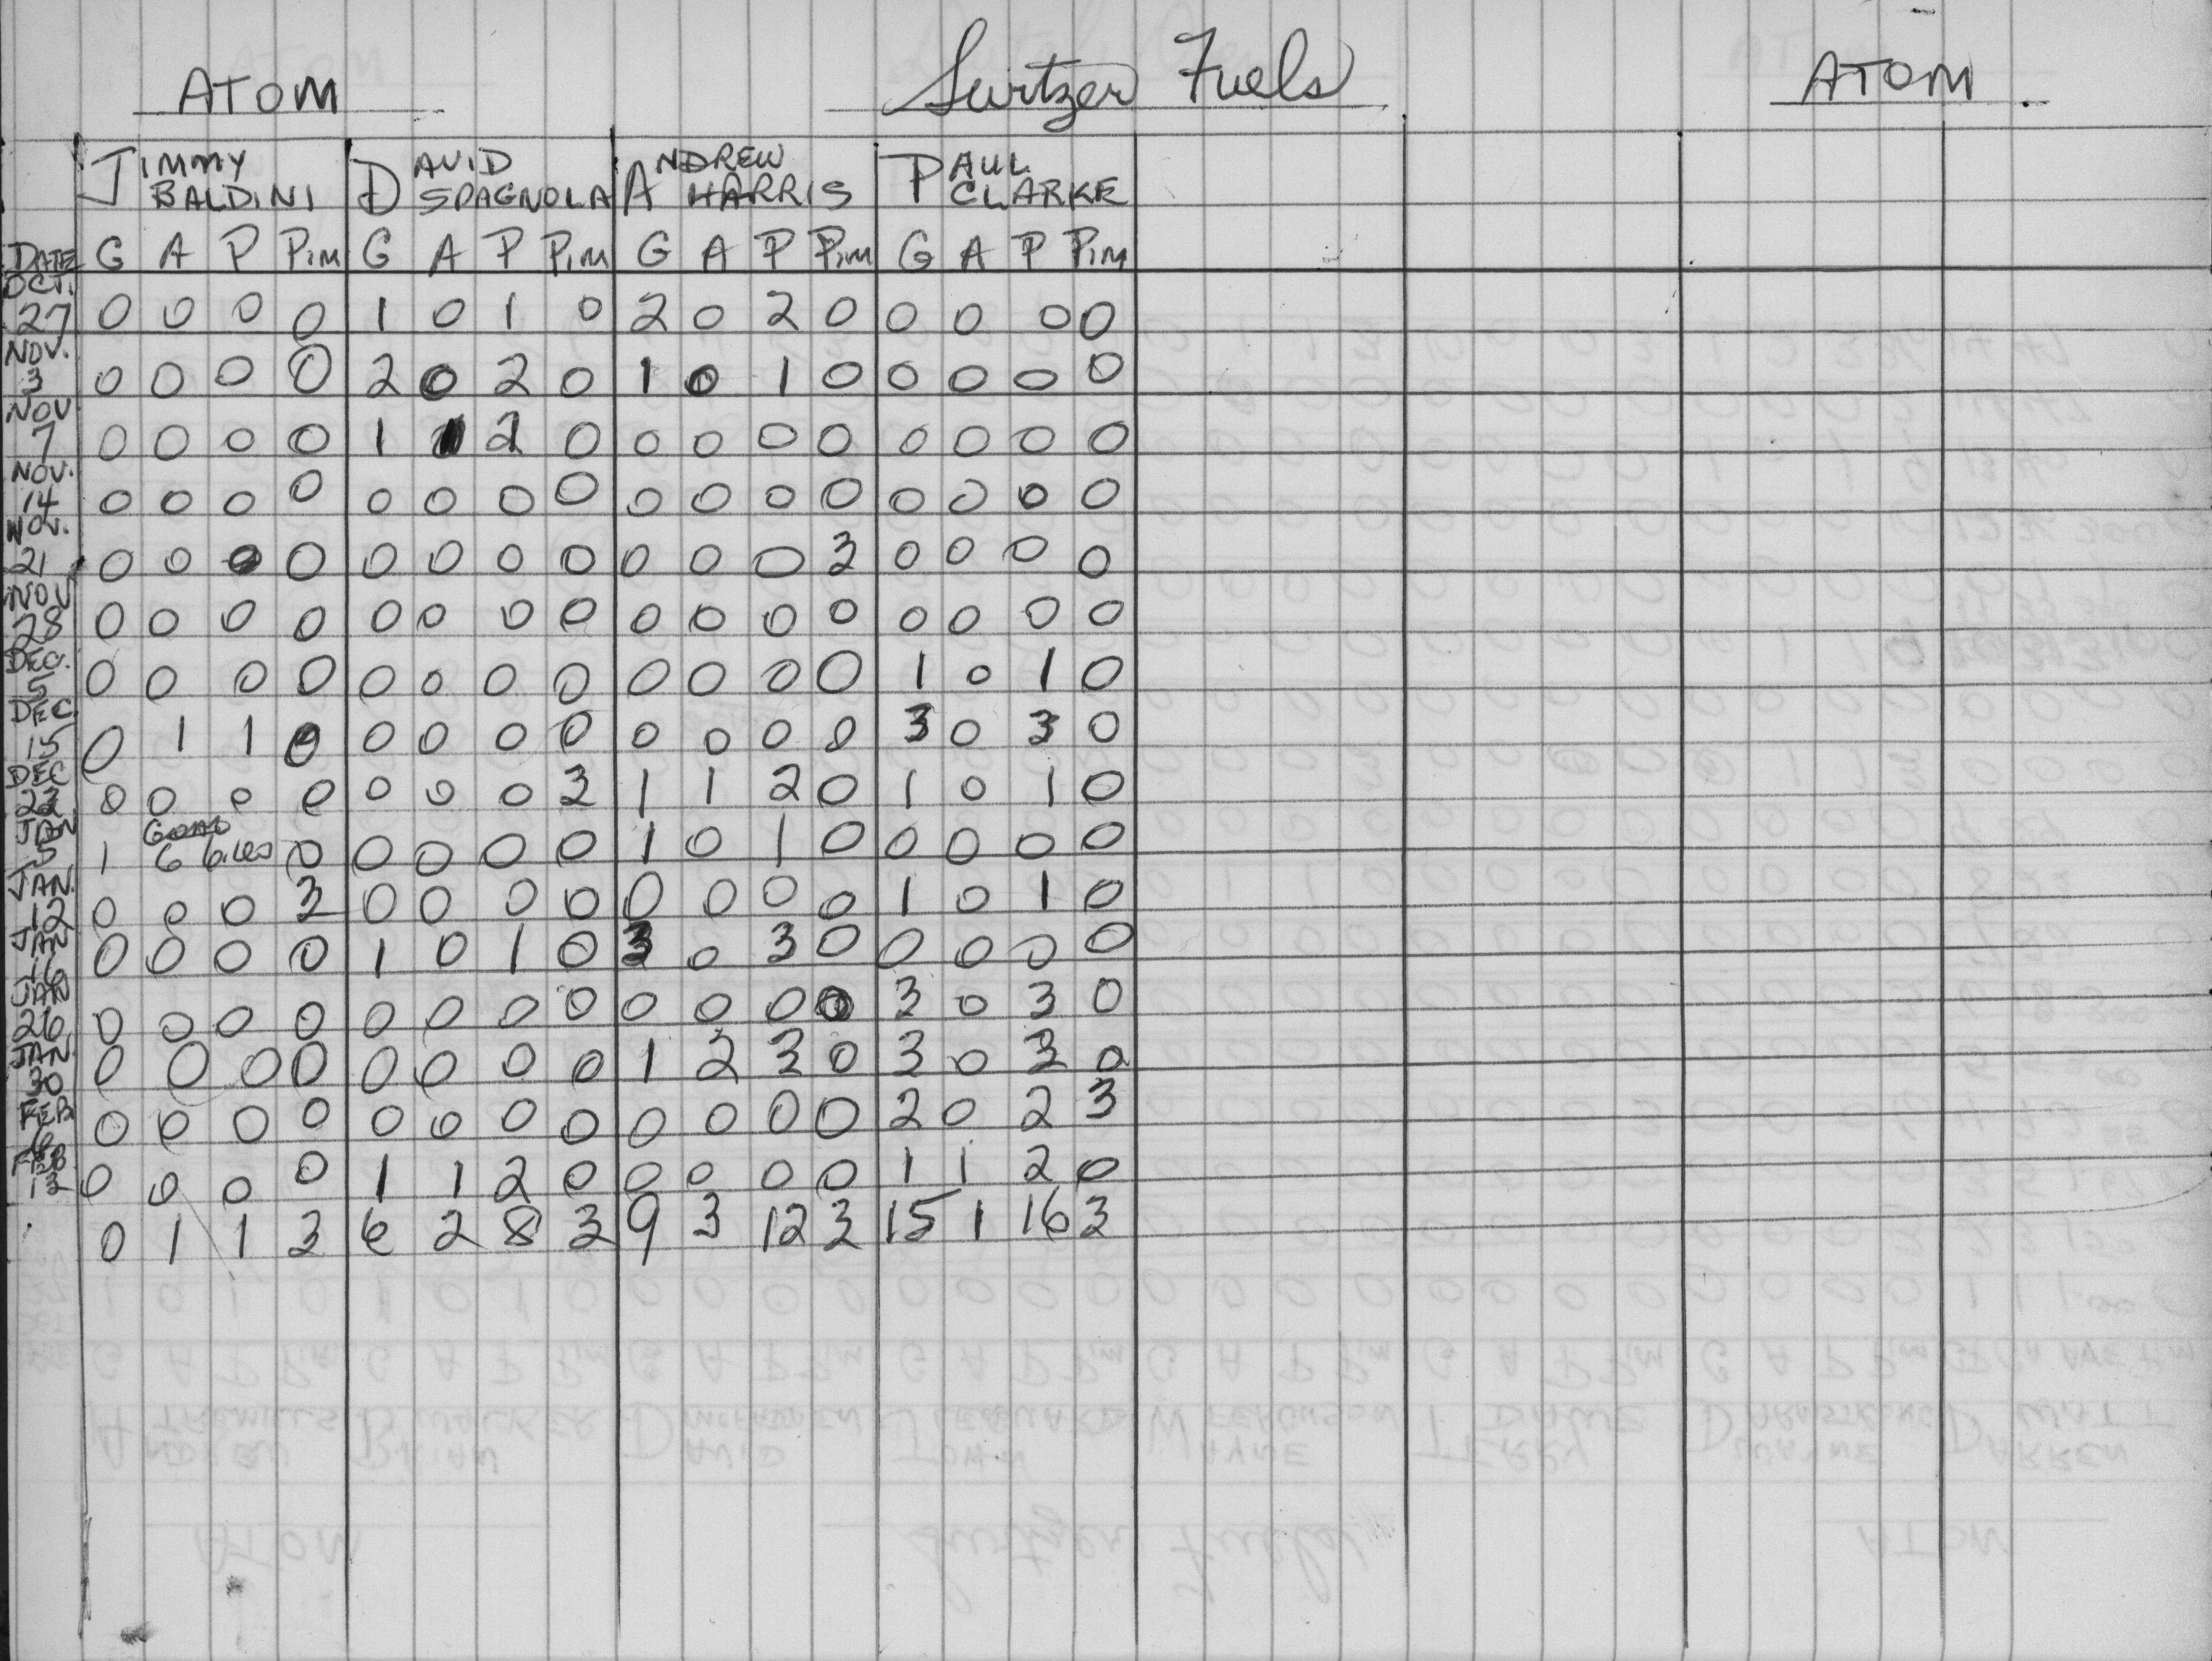 ATOM Switzer Fuels ATOM
JIMMY BALDINI DAVID SPAGNOLA ANDREW HARRIS PAUL CLARKE
DATE G A P Pim G A P Pim G A P Pim G A P Pim
OCT. 27 0 0 0 0 1 0 1 0 2 0 2 0 0 0 0 0
NOV. 3 0 0 0 0 2 0 2 0 1 0 1 0 0 0 0 0
NOV 7 0 0 0 0 1 1 2 0 0 0 0 0 0 0 0 0
NOV. 14 0 0 0 0 0 0 0 0 0 0 0 0 0 0 0 0
NOV. 21 0 0 0 0 0 0 0 0 0 0 0 3 0 0 0 0
NOV 28 0 0 0 0 0 0 0 0 0 0 0 0 0 0 0 0
DEC. 5 0 0 0 0 0 0 0 0 0 0 0 0 1 0 1 0
DEC. 15 0 1 1 0 0 0 0 0 0 0 0 0 3 0 3 0
DEC 22 0 0 0 0 0 0 0 3 1 1 2 0 1 0 1 0
JAN 5 1 Game 6 0 0 0 0 0 1 0 1 0 0 0 0 0
JAN. 12 0 0 0 3 0 0 0 0 0 0 0 0 1 0 1 0
JAN 16 0 0 0 0 1 0 1 0 3 0 3 0 0 0 0 0
JAN 26 0 0 0 0 0 0 0 0 0 0 0 0 3 0 3 0
JAN. 30 0 0 0 0 0 0 0 0 1 2 3 0 3 0 3 0
FEB 6 0 0 0 0 0 0 0 0 0 0 0 0 2 0 2 3
FEB 13 0 0 0 0 1 1 2 0 0 0 0 0 1 1 2 0
0 1 1 3 6 2 8 3 9 3 12 3 15 1 16 3